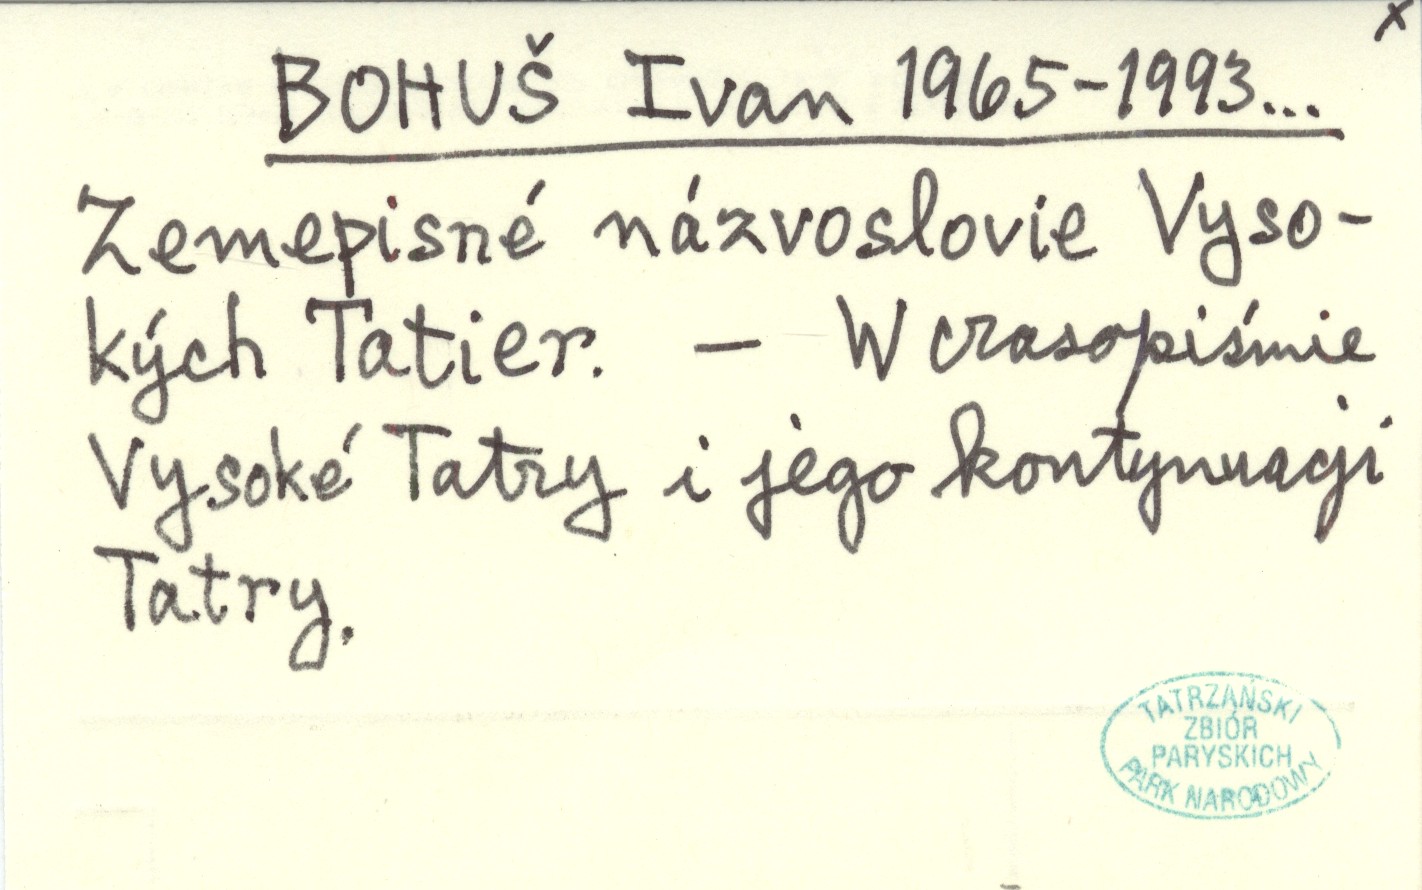 x
BOHUŠ Ivan 1965-1993...
Zemepisné názvoslovie Vyso-
kých Tatier. – W czasopiśmie
Vysoké Tatry i jego kontynuacji
Tatry.
TATRZAŃSKI
ZBIÓR
PARYSKICH
PARK NARODOWY